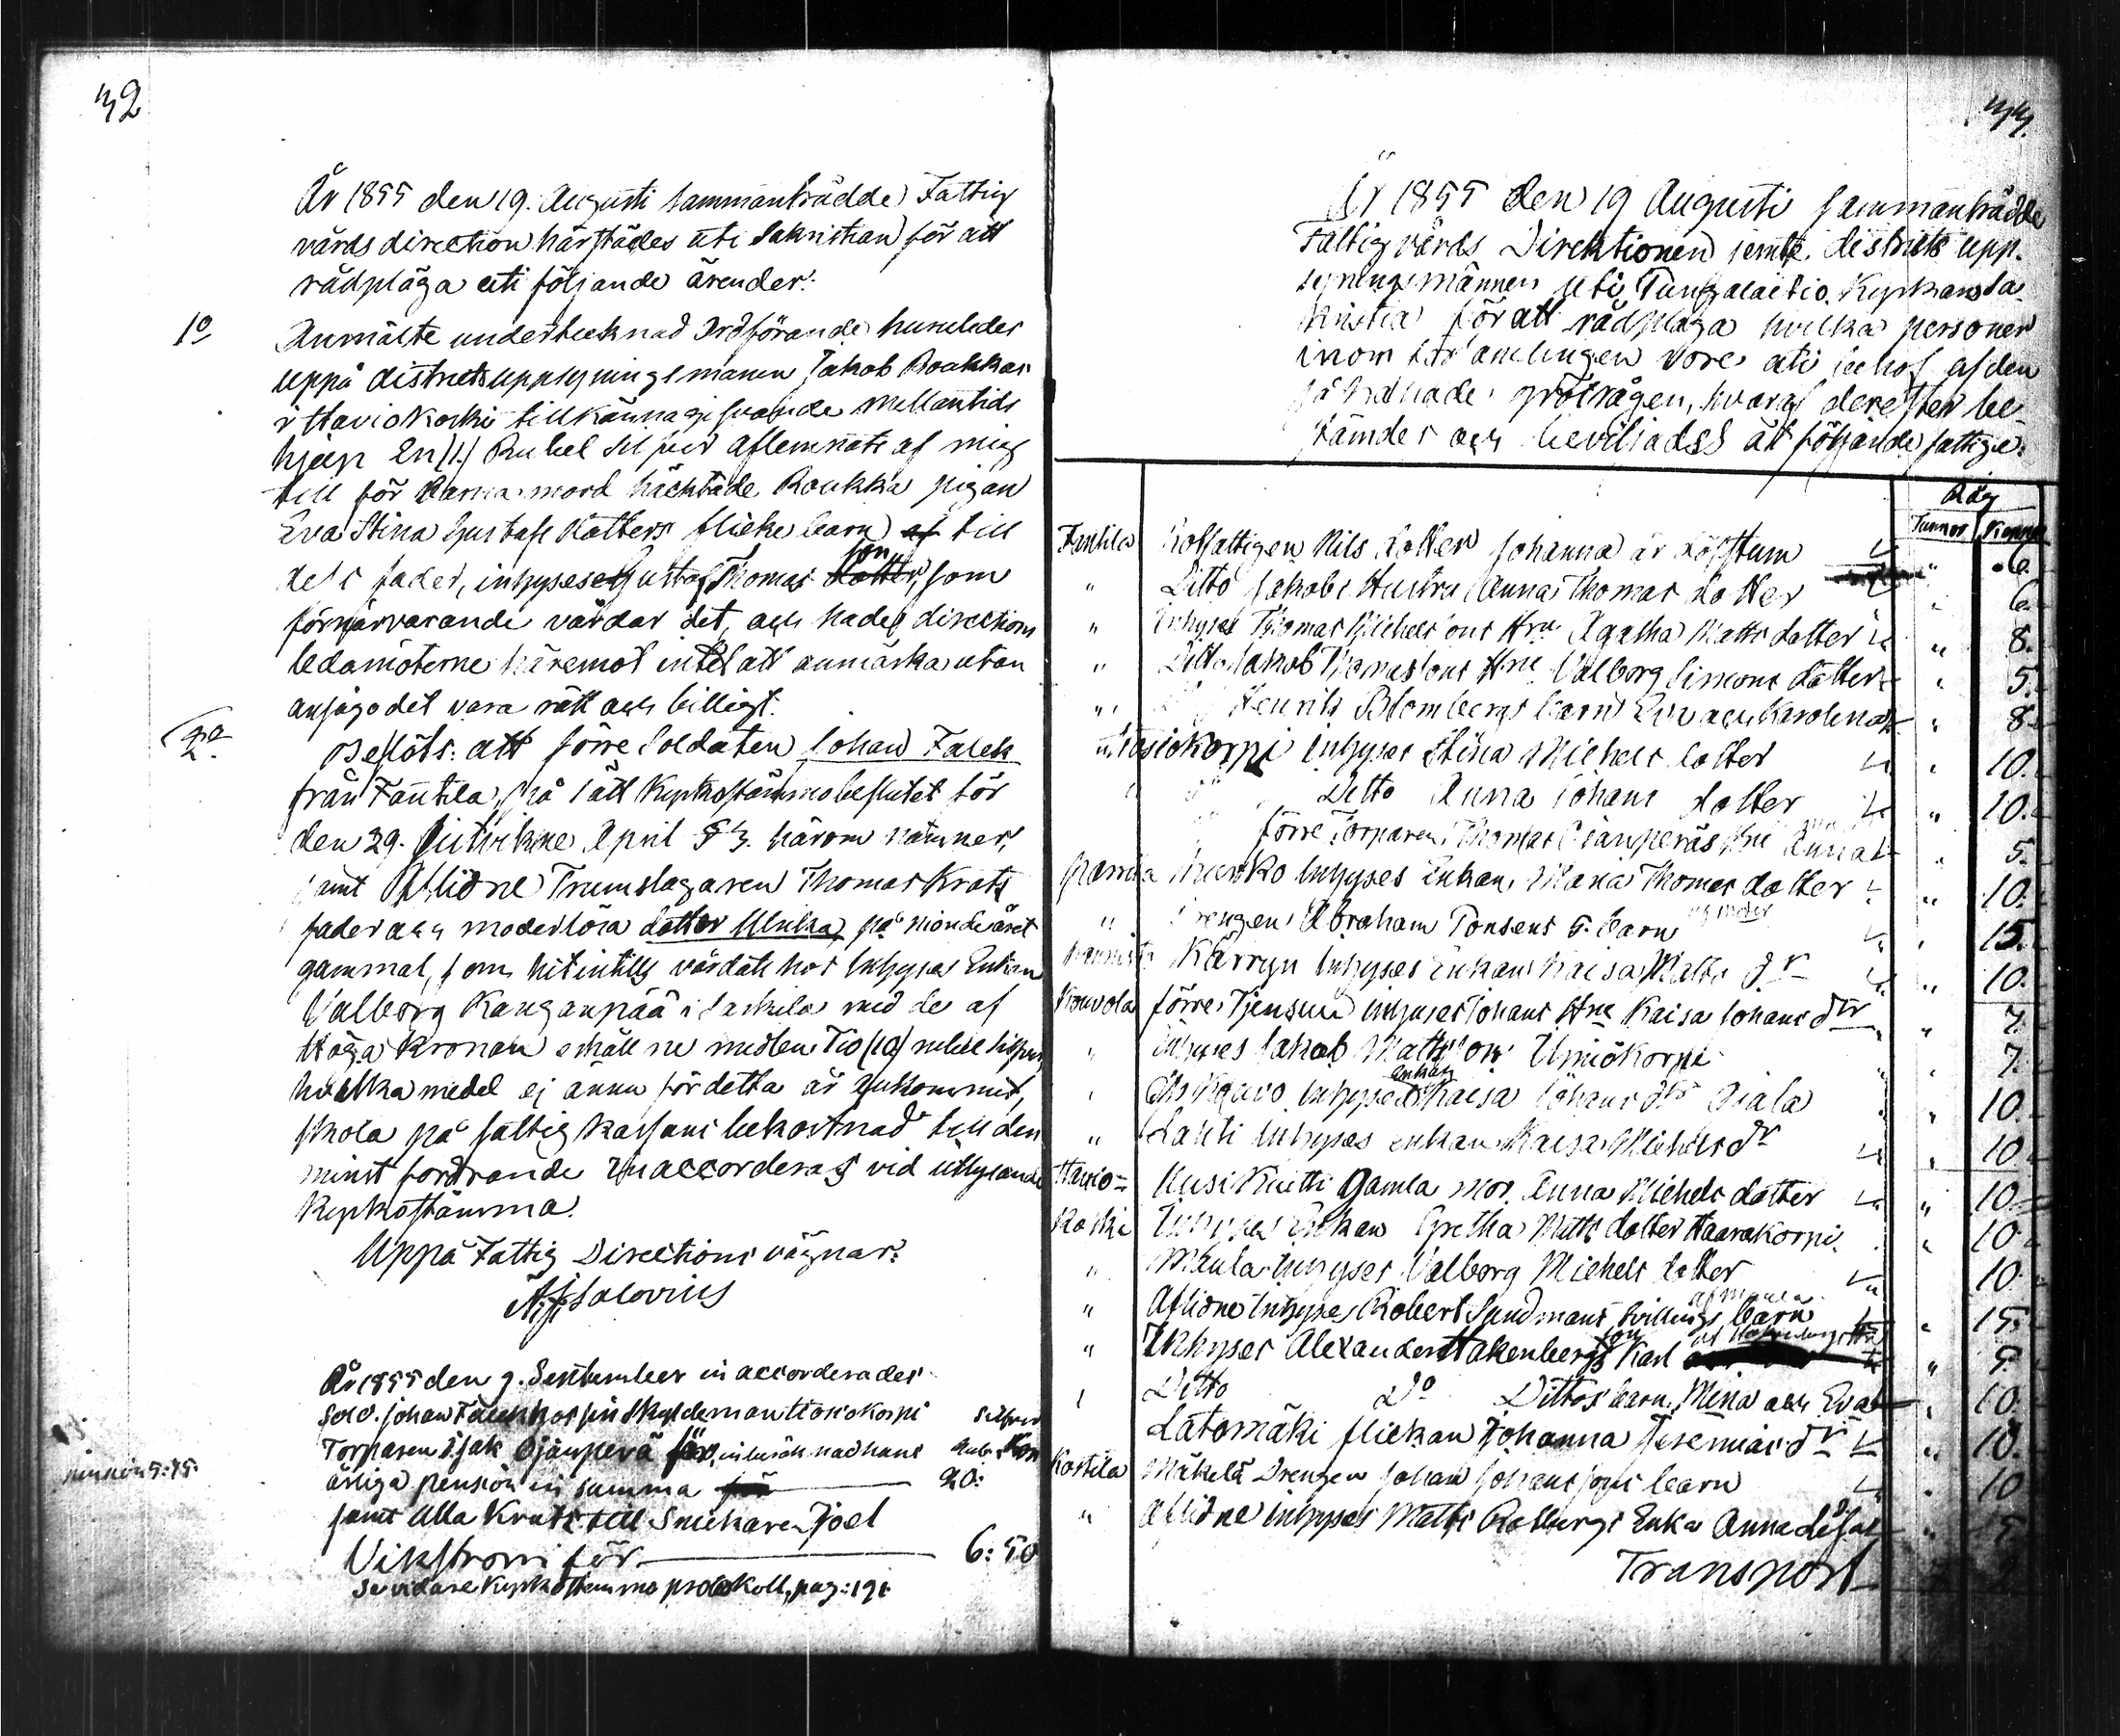 32
År 1855 den 19. Augusti sammanträdde Fattig
vårds direction härstädes uti Sakristian för att
rådpläga uti följande ärender:
1o Anmälte undertecknad Ordförande huruledes
uppå districtsuppsyningsmannen Jakob Roukkas
i Haviokoski tillkännagifvande mellantids
hjelp En (1.) Rubel Silfver aflemnats af mig
till för barnamord häcktade Roukka pigan
Eva Stina Gustafs dotters flicke barn af till
dess fader, inhyses Gustaf Thomas dotter, son, som
förnärvarande vårdar det, och hade directions
ledamöterne häremot intet att anmärka utan
ansågo det vara rätt och billigt.
2o Beslöts: att förre Soldaten Johan Falck
från Fantila, på sätt Kyrkostämmobeslutet för
den 29. April § 3. härom nämner,
samt Aflidne Trumslagaren Thomas Krats
fader och moderlösa dotter Ulrika, på nionde året
gammal, som hitintills vårdats hos Inhyses Enkan
Valborg Kanganpää i Saikila med de af
Höga Kronan erhållne medlen Tio (10) rubel silfver,
hvilka medel ej ännu för detta år ankommit,
skola på fattig kassans bekostnad till den
minst fordrande inaccorderas vid utlysande
Kyrkostämma.
Uppå Fattig Directions vägnar:
Salovius
År 1855 den 9. September inaccorderades
Sold. Johan Falck hos sin Skyldeman Hosiokorpi Silfver
Torparen Isak Ojanperä för, inberäknad hans Rub. Kop
årliga pension in summa för 20:
pension 5:75.
samt Ulla Krats till Snickaren Joel
Vikström för 6: 50
Se vidare Kyrkostämmo protokoll, pag: 191
33.
År 1855 den 19 Augusti sammanträdde
Fattigvårds Direktionen jemte districts upp-
syningsmännen uti Kyrkans Sa-
kristia för att rådpläga hvilka personer
inom församlingen vore uti behof af den
grötrågen, hvaraf derefter be-
stämdes och beviljades åt följande fattige:
Råg
Tunnor Kappar
Fantila Rotfattigen Nils dotter Johanna är döfstum " 6.
" Ditto Jakobs Hustru Anna Thomas dotter " 6.
" Inhyses Thomas Michelsons Hru Agatha Matts dotter " 8.
" Ditto Jakob Thomassons Hru Valborg Simons dotter " 5.
" Henrik Blombergs barn Eva och Karolina " 8.
Inhyses Stina Michels dotter " 10.
" Ditto Anna Johans dotter " 10.
förre Torparen Thomas Ojanperäs Hru Anna " 5.
Inhyses Enkan Maria Thomas dotter " 10.
" Drengen Abraham Ponsens 5. barn " 15.
Kärryn Inhyses Enkan Kaisa Matts dr " 10.
Kouvola förre Tjensm inhyses Johans Hru Kaisa Johans dtr " 7.
" Inhyses Jakob Mattsson " 7.
" Inhyses enkan Kaisa Johans dtr Ojala " 10.
" Lahti Inhyses enkan Kaisa Michels dr " 10.
Havio= Uusi Kiutti Gamla mor Anna Michels dotter " 10
koski Inhyses Enkan Gretha Matts dotter Haavakorpi. " 10
" Maula Inhyses Valborg Michels dotter 10.
" Aflidne Inhyses Robert Sundmans tvillings barn af Maula " 15.
" Inhyses Alexander Hakenbergs son Karl " 5.
" Ditto Do Dittos barn Mina och Eva " 10.
Latomäki flickan Johanna Jeremias dr " 10.
Kostila Mäkelä Drengen Johan Johanssons barn " 10
" Aflidne inhyses Matts Enka Anna " 5
Transport